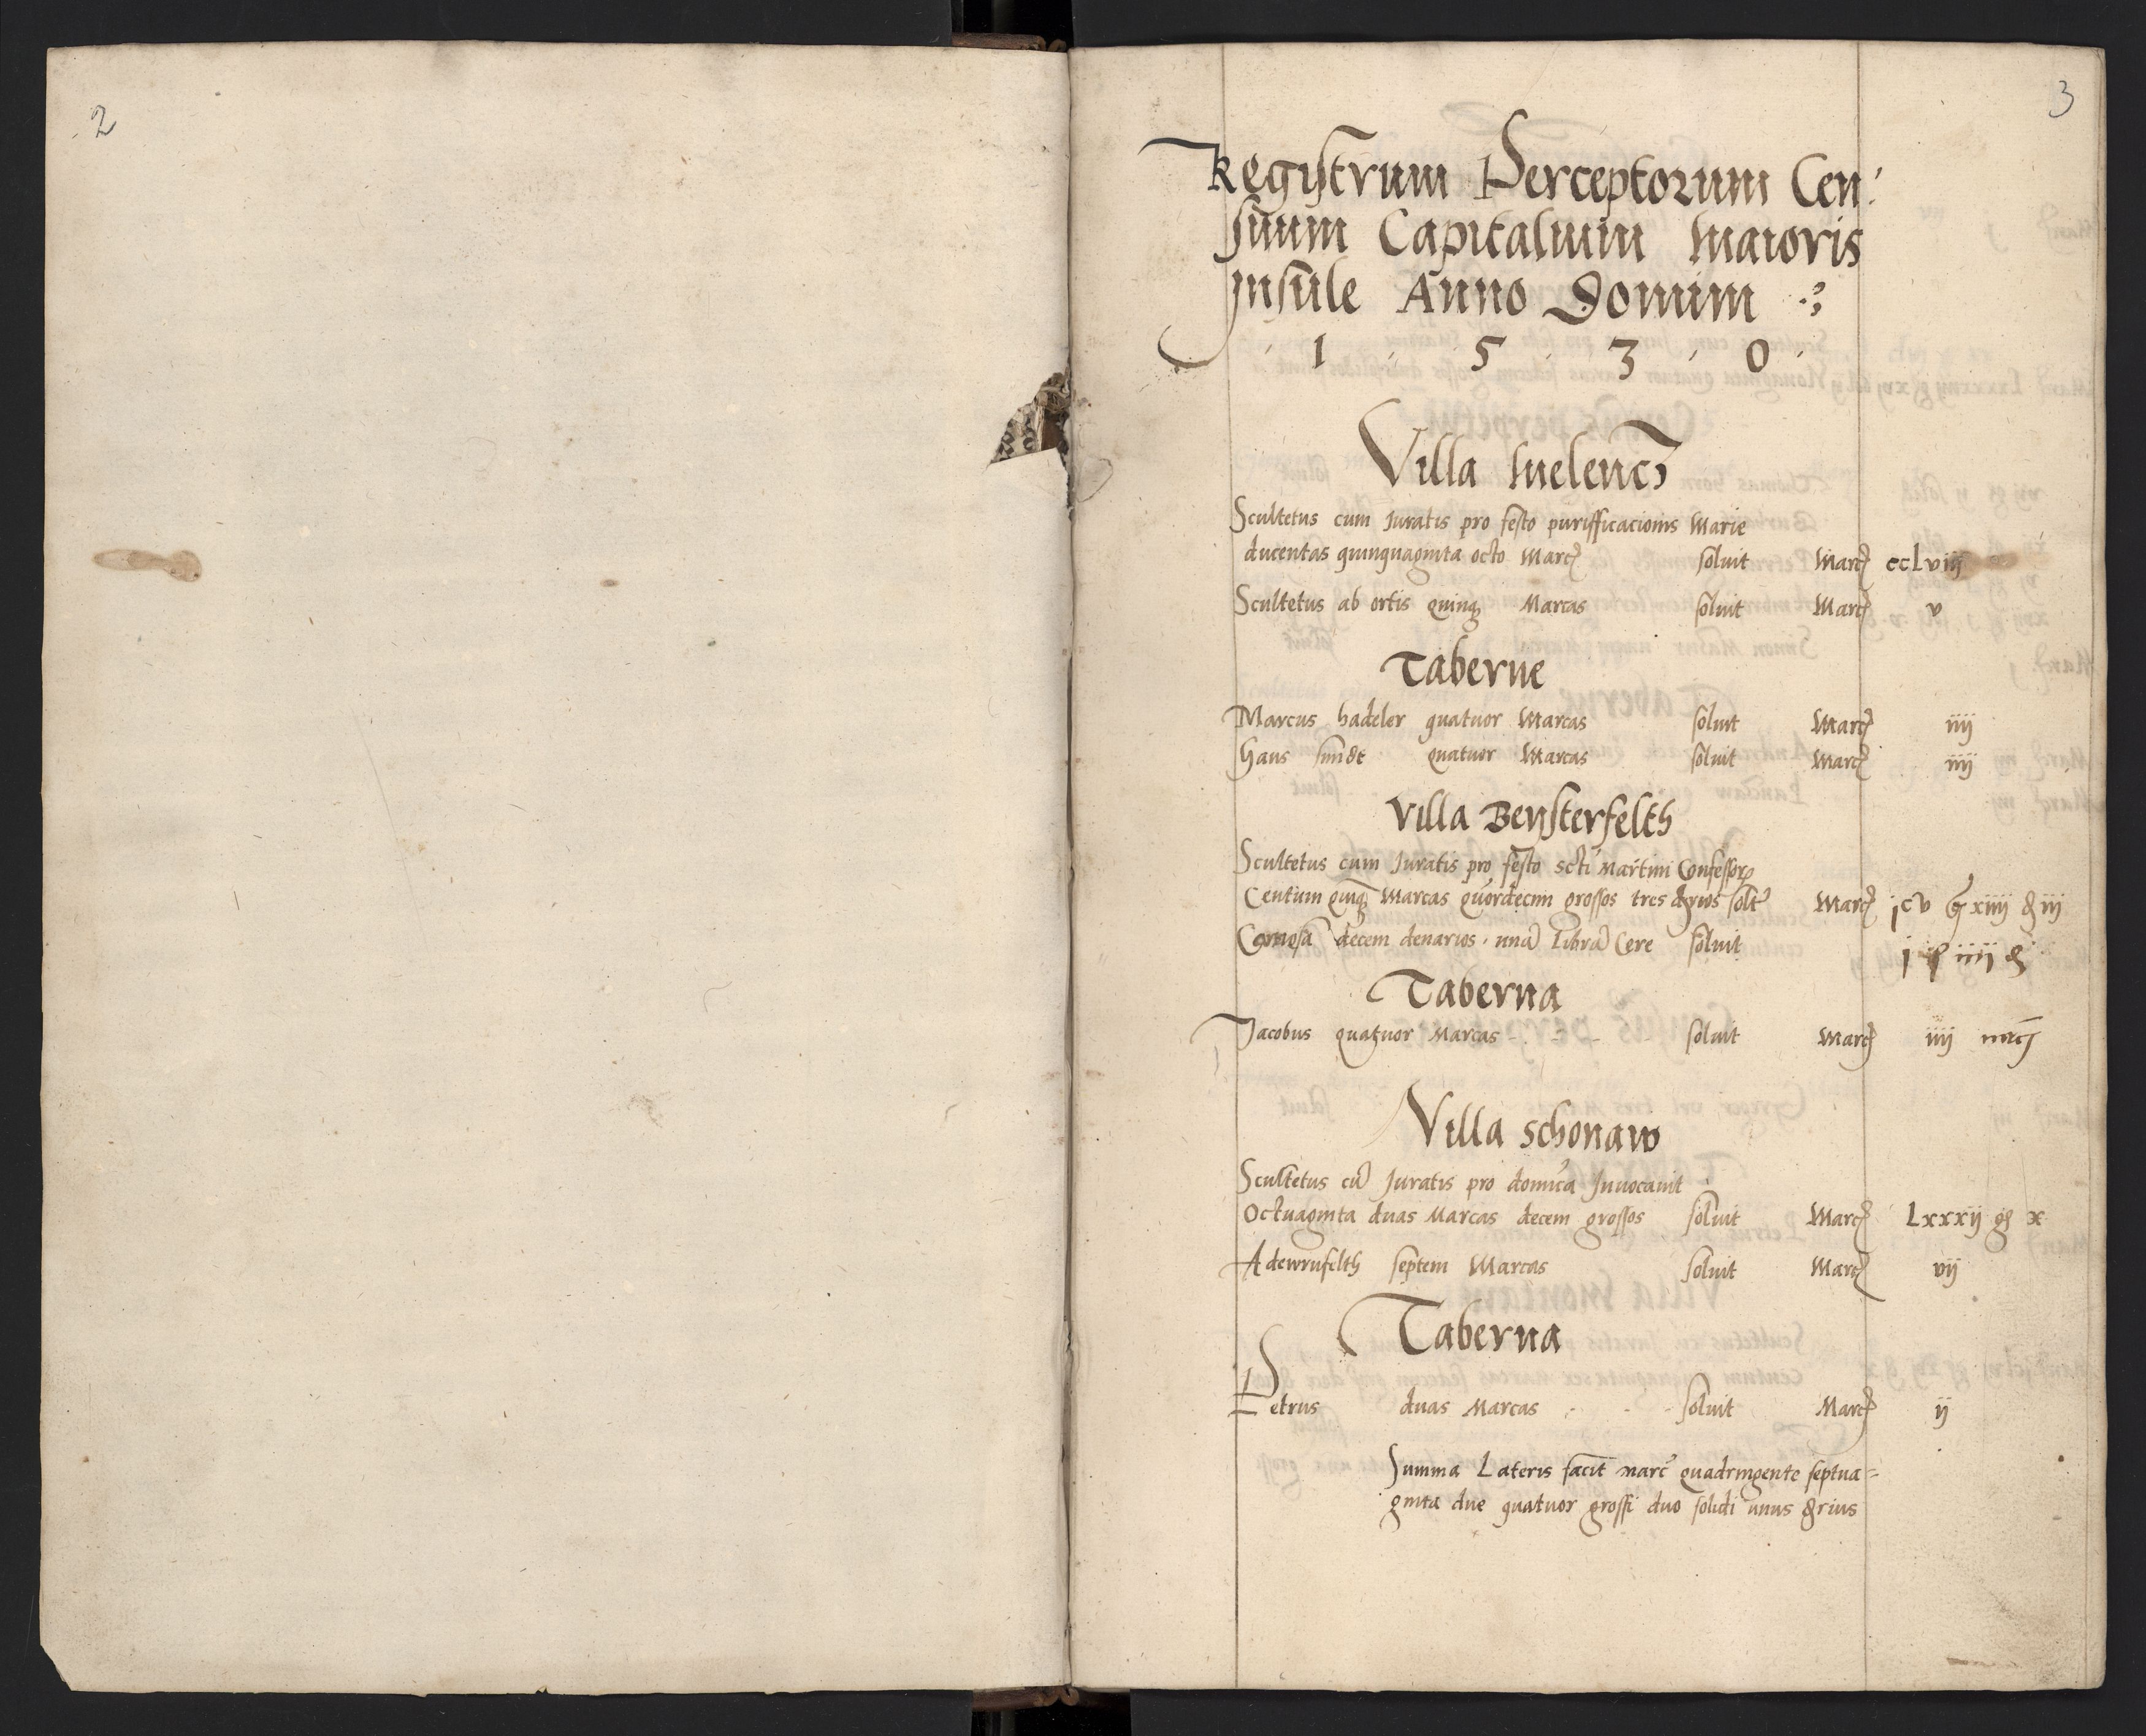 2
3
Registrum Perceptorum Cen:
suum Capitalium maioris
jnsule Anno Domini
1 5 3 0
Villa
Scultetus cum Juratis pro festo puriffıcacionis Marie
ducentas quinquaginta octo Marc soluit Marc cclviij
Scultetus ab ortis quinq Marcas soluit Marc v
Taberne
Marcus hadeler quatuor Marcas soluit Marc iiij
Hans quatuor Marcas soluit Marc iiij
Villa Beysterfelth
Scultetus cum Juratis pro festo scti Martini Confessor
Centum quiq Marcas quordecim grossos tres solt Marc jcv xiiij iij
decem denarios una Libra Cere soluit j iiij
Taberna
Jacobus quatuor Marcas soluit Marc iiij mrc
Villa Schonaw
Scultetus cu Juratis pro domica Inuocauit
Octuaginta duas Marcas decem grossos soluit Marc Lxxxij g x
Adewrnfelth septem Marcas soluit Marc vij
Taberna
Petrus duas Marcas soluit Marc ij
Summa Lateris facit marc quadringente septua=
ginta due quatuor grossi duo solidi unus